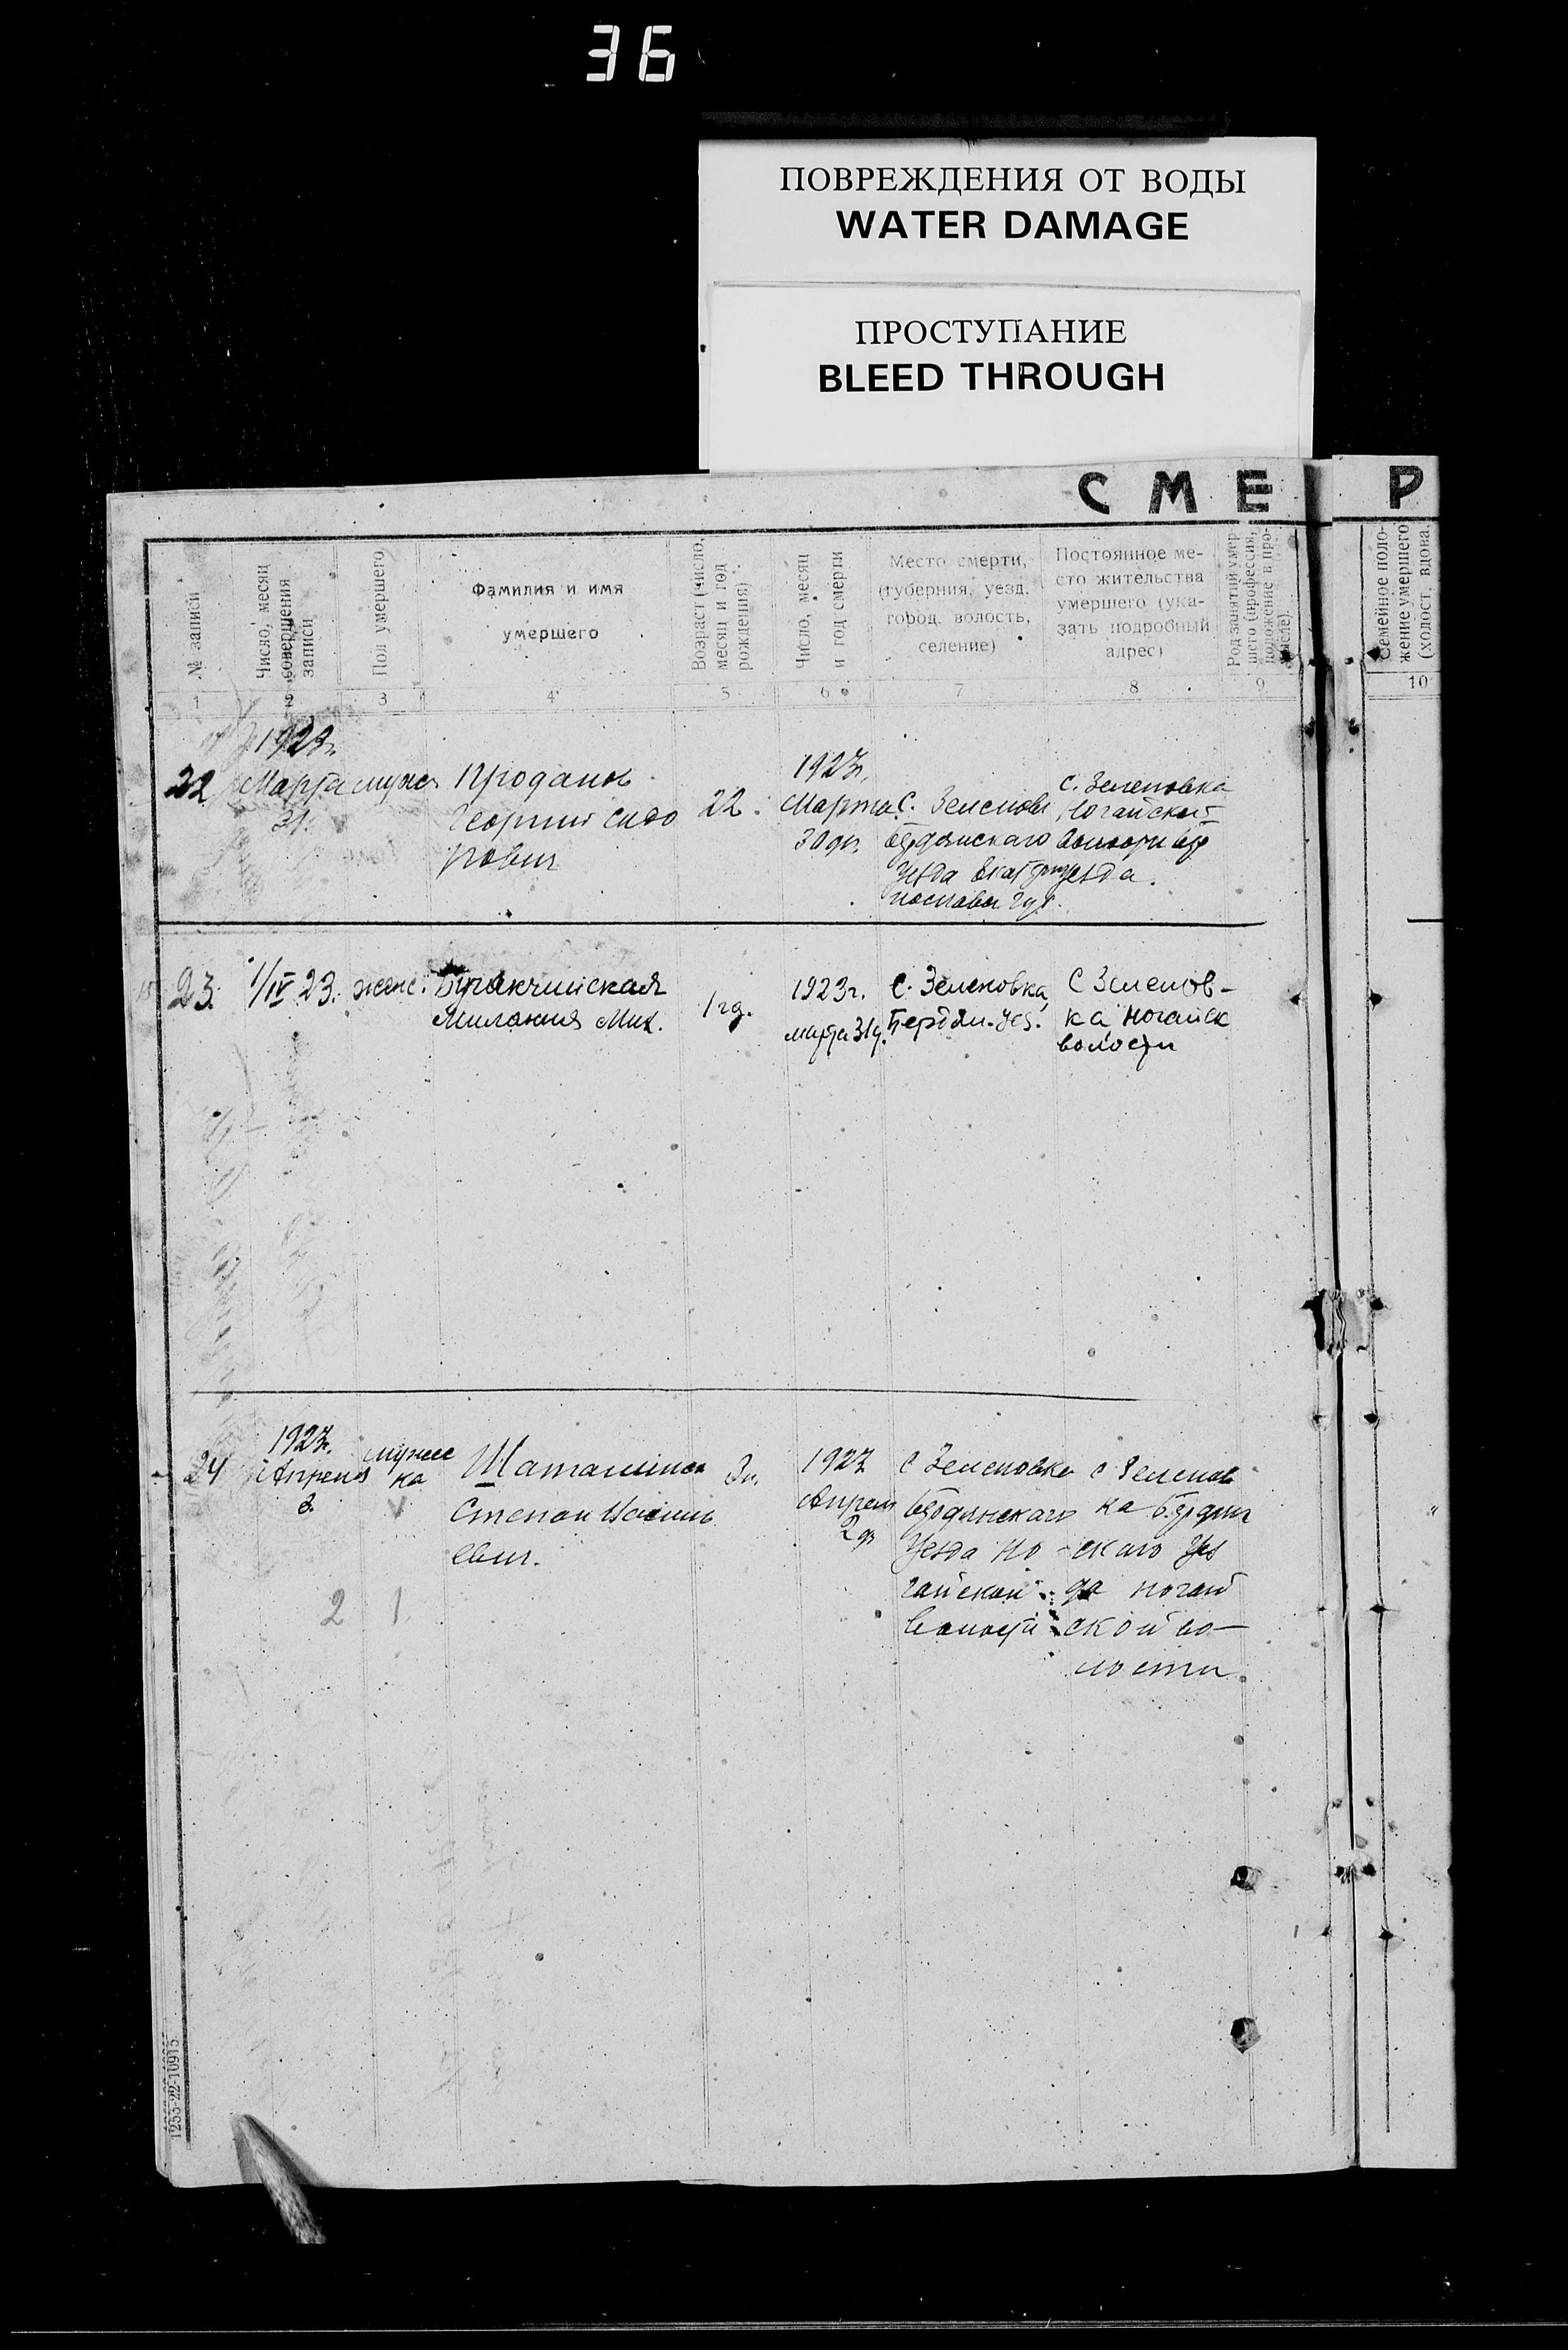 36
ПОВРЕЖДЕНИЯ ОТ ВОДЫ
WATER DAMAGE
ПРОСТУПАНИЕ
BLEED THROUGH
СМЕ Р
№ записи
Число, месяц
совершения
записи
Пол умершего
Фамилия и имя
умершего
Возраст (число,
месяц и год
рождения)
Число, месяц
и год смерти
Место смерти,
(губерния, уезд,
город, волость,
селение)
Постоянное ме-
сто жительства
умершего (ука-
зать подробный
адрес)
Род занятий умер-
шего (профессия,
положение в про-
мысле).
Семейное поло-
жение умершего
(холост, вдова.
1 2 3 4 5 6 7 8 9 10
1923г.
22 Марта
31.
Проданов
Георгий Сидо
рович
22.
1923г.
Марта
30 дн.
С. Зеленовк
Бердянскаго
Уезда
губ.
С. Зеленовка
Ногайской
уезда.
23. 1/IV 23. женс. Буракчийская
Милания Мих.
1 гд.
1923г.
марта 31д.
С. Зеленовка
Бердян. уез.
С Зеленов-
ка, Ногайск
волости
24
1923г.
Апреля
3.
мужес
ка
Степан Васил
евич.
1923
Апреля
2 дн
С Зеленовка
Бердянскаго
Уезда Но
гайской
Волости
с Зеленов
ка Бердян
скаго Уез
да Ногай
ской во-
лости.
2 1.
1253-22-10915